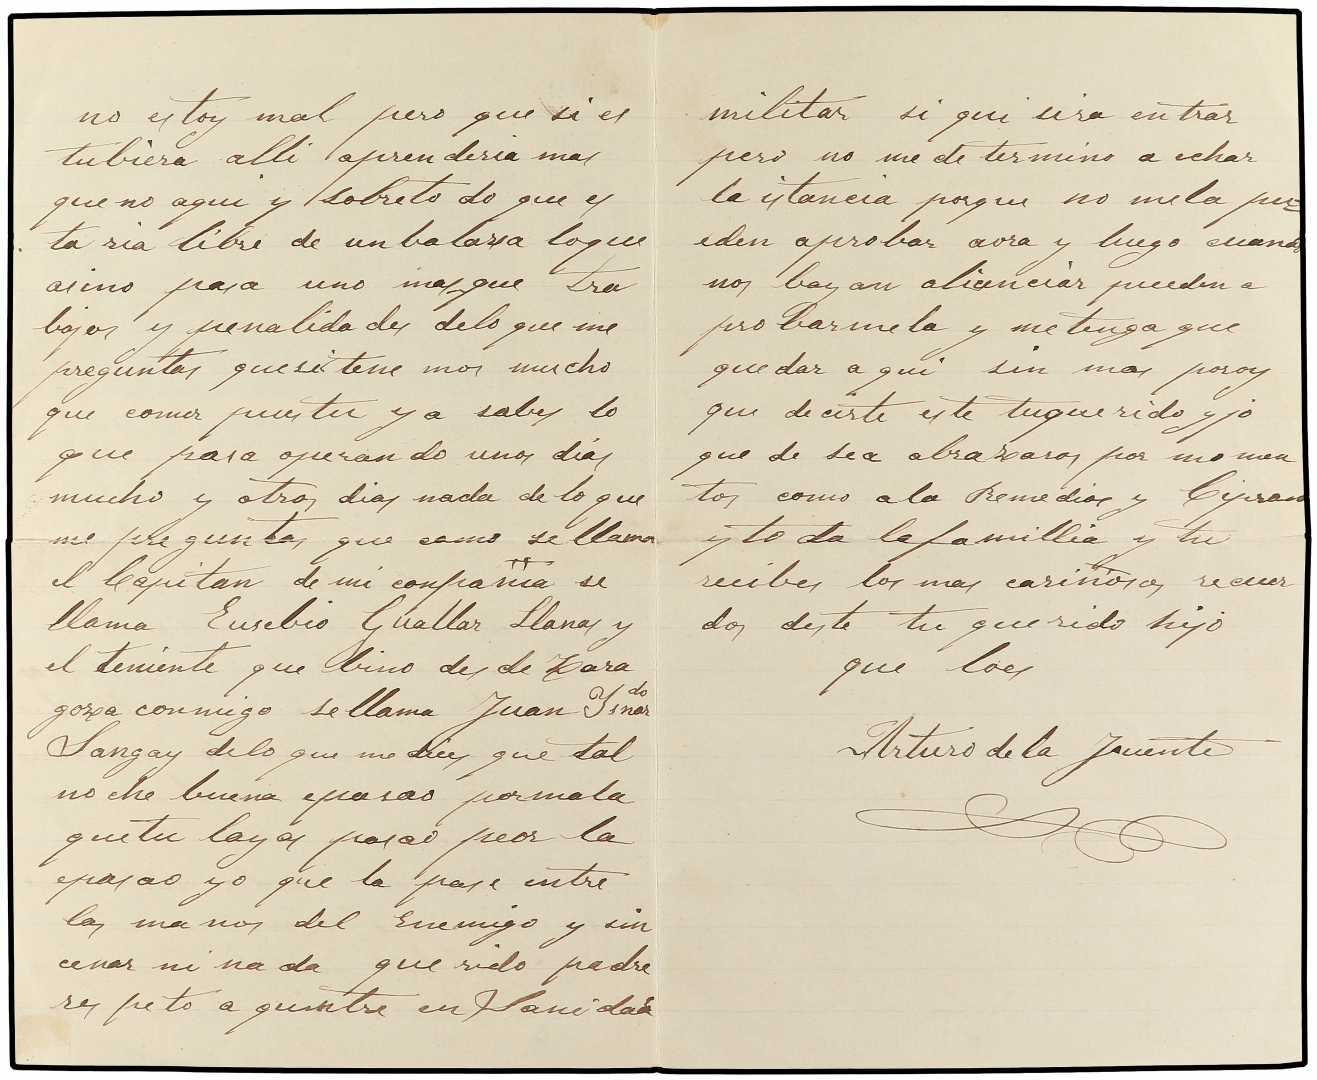 no estoy mal pero que si es
tubiera alli aprenderia mas
que no aqui y sobreto do que es
ta ria libre de un balaza lo que
asino pasa uno mas que tra
bajos y penalida des delo que me
preguntas que si tene mos mucho
que comer pues tu ya sabes lo
que pasa operan do unos dias
mucho y otros dias nada de lo que
me preguntas que como se llama
el Capitan de mi conpañia se
llama Eusebio Guallar Llanas y
el teniente que bino des de Zara
goza conmigo se llama Juan Ysnar do
Sangay delo que me dices que tal
no che buena epasao por mala
que tu layas pasao peor la
epasao yo que la pase entre
las ma nos del Enemigo y sin
cenar ni na da que rido padre
res peto a quentre en Sanidad
militar si qui siera en trar
pero no me de termino a echar
la istancia porque no me la pu
eden aprobar aora y luego cuando
nos bayan alicenciar pueden a
pro barme la y me tenga que
que dar a qui sin mas poroy
que decirte este tu que rido yjo
que de sea abrazaros por mo men
tos como ala Remedios y Ciprano
y to da la famillia y tu
recibes los mas cariñosos recuer
dos deste tu que rido hijo
que loes
Arturo de la Fuente